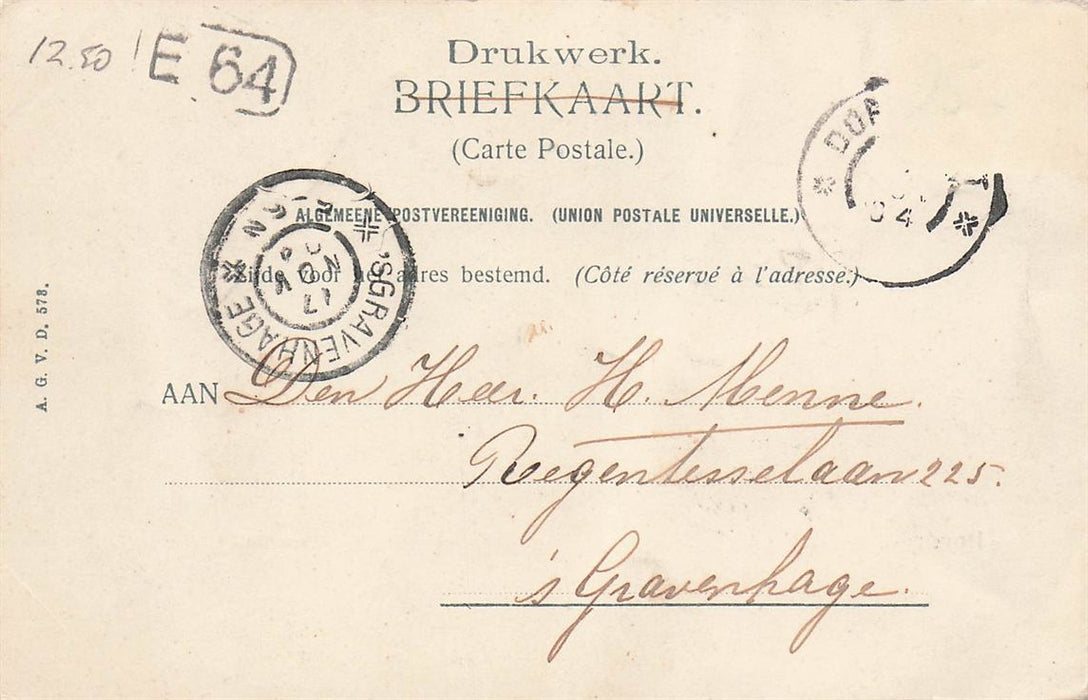 12.50 E 64
Drukwerk.
BRIEFKAART.
(Carte Postale.)
ALGEMEENE POSTVEREENIGING. (UNION POSTALE UNIVERSELLE.)
Zijde voor het adres bestemd. (Côté réservé à l'adresse.)
'SGRAVENHAGE
17 NOV
04
A. G. V. D. 578.
AAN Den Heer. H. Menne.
Regentesselaan 225.
's Gravenhage.